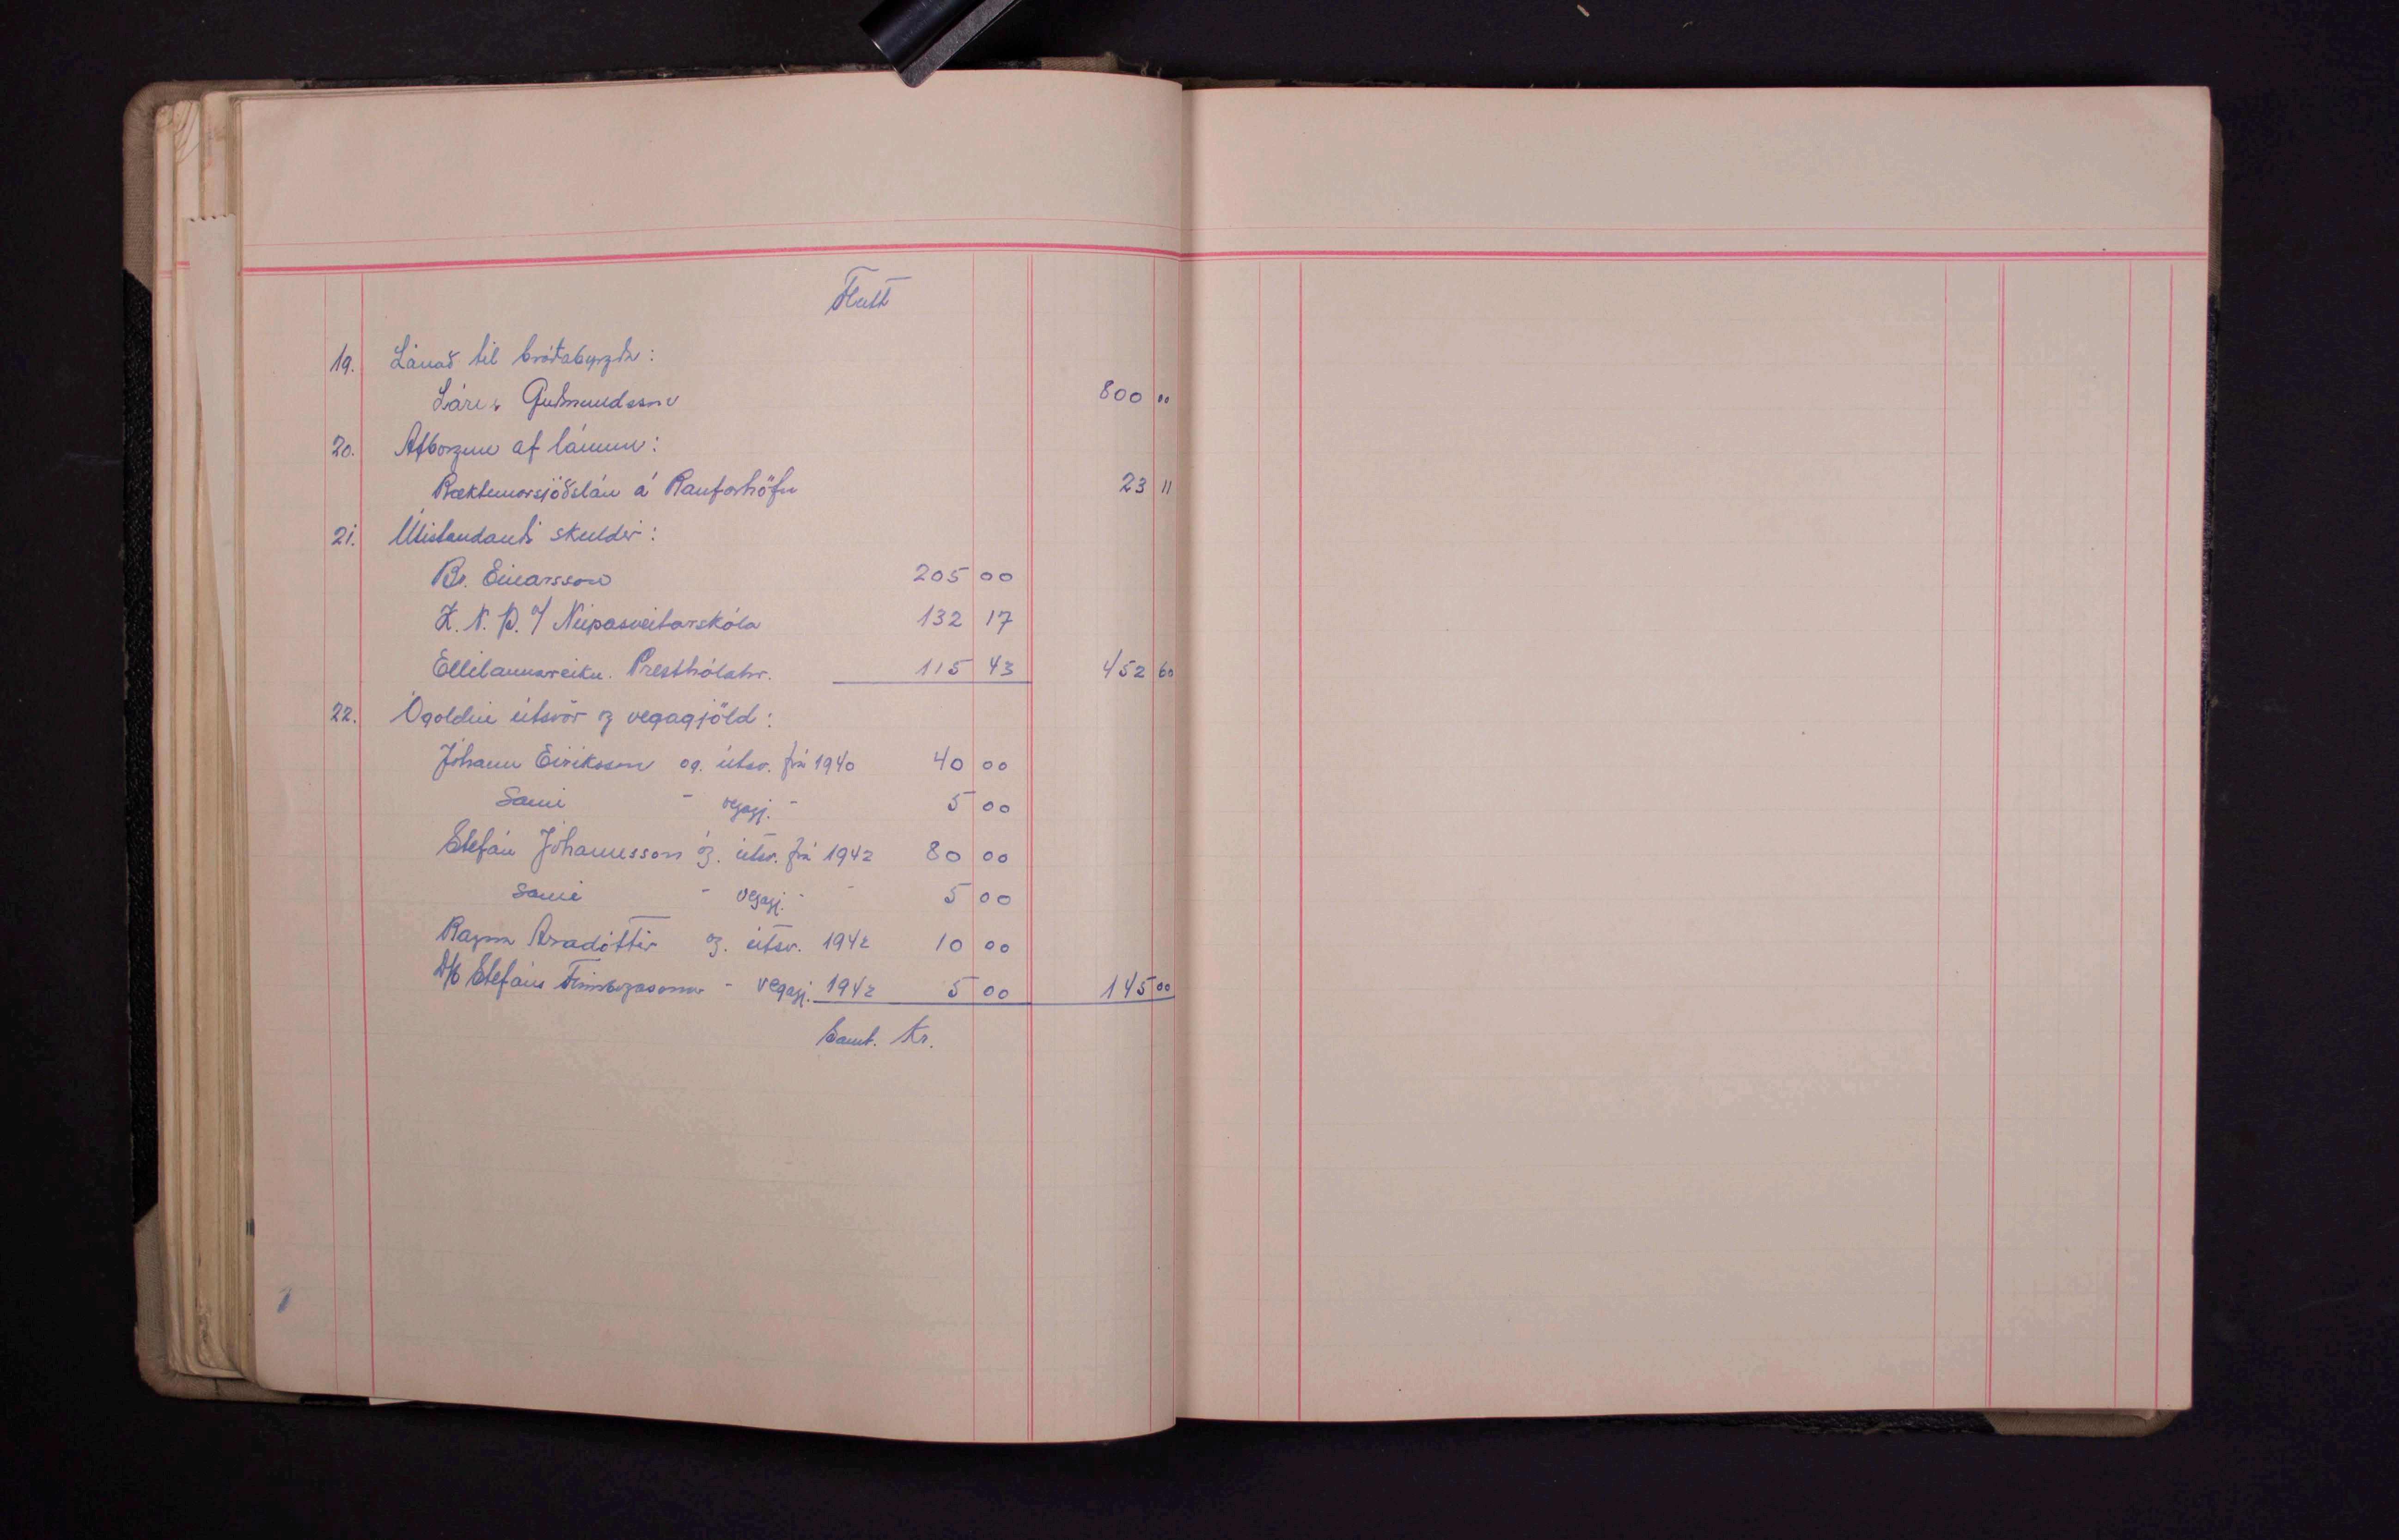 Flutt
19. Lánað til bráðabyrgða:
Lárus Guðmundsson 800 00
20. Afborgun af lánum:
Ræktunarsjóðslán á Raufarhöfn 23 11
21. Útistandandi skuldir:
Br. Einarsson 205 00
K. N. Þ. v/ Núpasveitarskóla 132 17
Ellilaunareikn. Presthólahr. 115 43 452 60
22. Ógoldin útsvör og vegagjöld:
Jóhann Eiríksson óg. útsv. frá 1940 40 00
Sami - vegagj. - 5 00
Stefán Jóhannsson óg. útsv. frá 1942 80 00
Sami - vegagj. - - 5 00
Ragna Aradóttir óg. útsv. 1942 10 00
D/b Stefáns Finnbogasonar - vegagj. 1942 5 00 145 00
Samt. Kr.